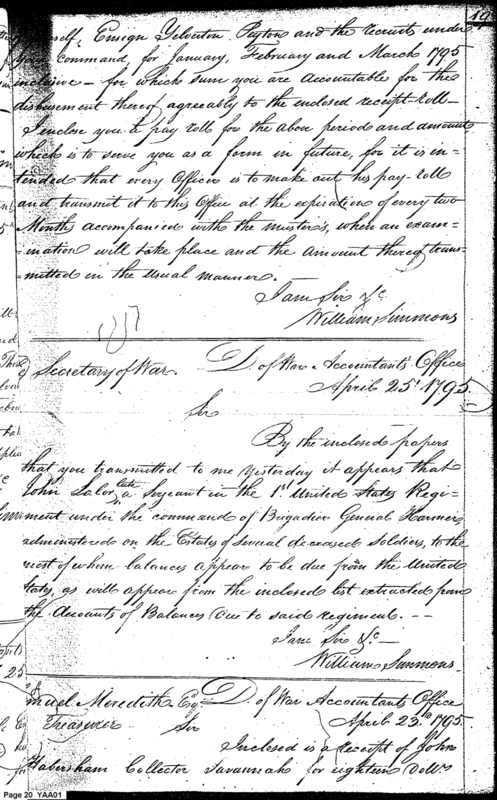 19
self, Ensign Yelverton Peyton and the recruits under
your command, for January, February and March 1795
inclusive - for which sum you are accountable for the
disbursement thereof agreeably to the enclosed receipt-roll -
I enclose you a pay roll for the above period and amount
which is to serve you as a form in future, for it is in=
=tended that every Officer is to make out his pay-roll
and transmit it to this Office at the expiration of every two
Months accompanied with the musters, when an exam=
=ination will take place and the amount thereof trans=
=mitted in the usual manner.
I am Sir &c.
William Simmons
Secretary of War. D. of War Accountants Office
April 25th 1795
Sir
By the inclosed papers
that you transmitted to me yesterday it appears that
John Lalor late a Serjeant in the 1st United States Regi=
ment under the command of Brigadier General Harmer,
administered on the Estates of several deceased soldiers, to the
most of whom balances appear to be due from the United
States, as will appear from the inclosed list extracted from
the Accounts of Balances due to said regiment. - -
I am Sir &c -
William Simmons.
muel Meredith Esqr. D. of War Accountants Office
Treasurer Sir April 25th 1795
Inclosed is a receipt of John
Habersham Collector Savannah for eighteen Dolls
Page 20 YAA01